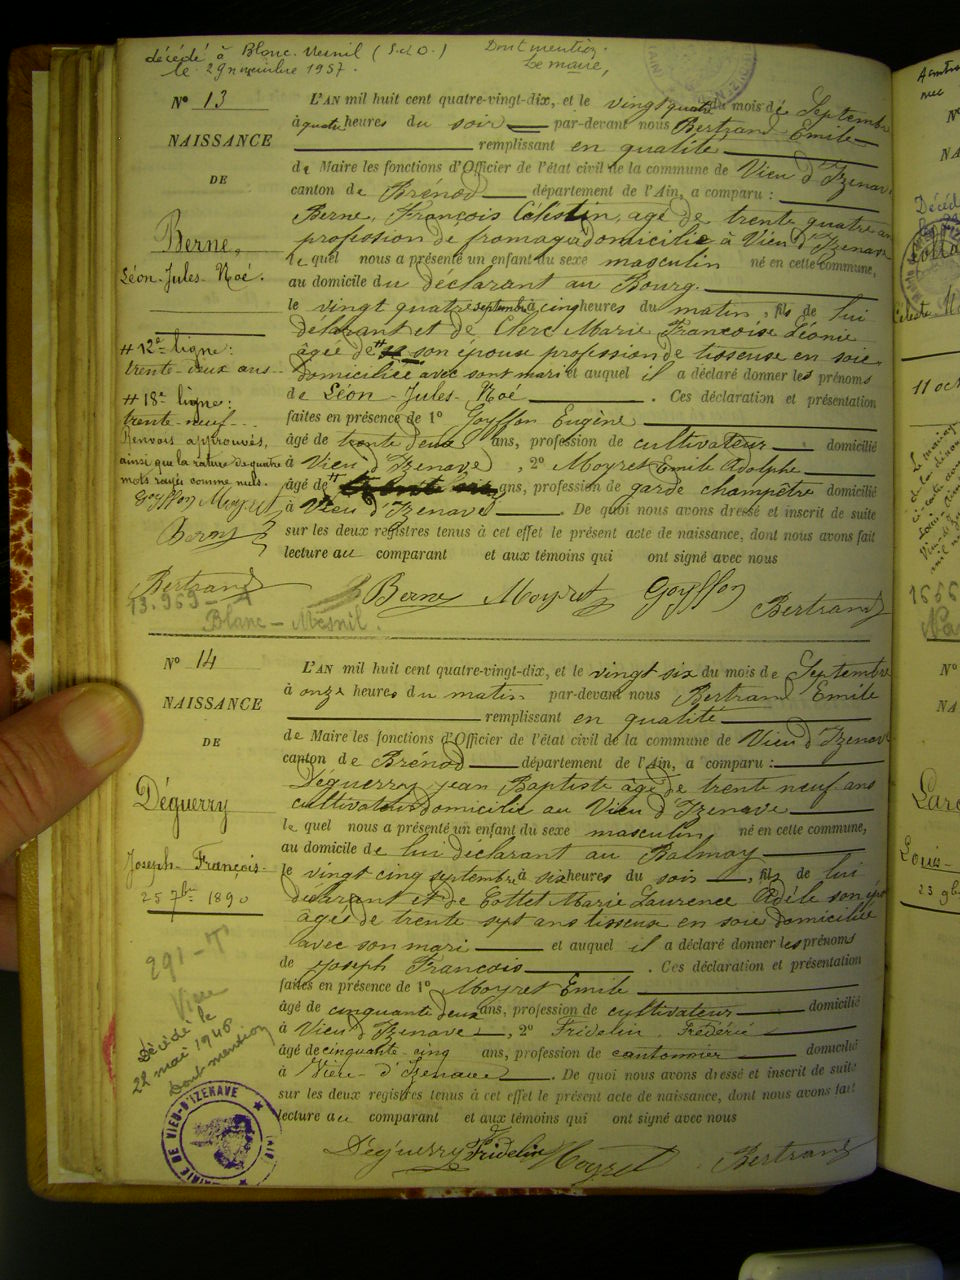 décédé à Blanc-Mesnil (S.et O.) Dont mention.
le 29 novembre 1957. Le maire,
N° 13
NAISSANCE
DE
Berne,
Léon-Jules-Noé.
# 12e ligne:
trente-deux ans
# 18e ligne:
trente-neuf
Renvois approuvés,
ainsi que la rature de quatre
mots rayés comme nuls.
Goyffon Moyret
Berne
Bertrand
13.959
Blanc-Mesnil.
L'AN mil huit cent quatre-vingt-dix, et le vingt quatre du mois de Septembre
à quatre heures du soir par-devant nous Bertrand Emile
remplissant en qualité
de Maire les fonctions d'Officier de l'état civil de la commune de Vieu d'Izenave
canton de Brénod département de l'Ain, a comparu :
Berne, François Célestin, agé de trente quatre ans
profession de fromager domicilié à Vieu d'Izenave
lequel nous a présenté un enfant du sexe masculin né en cette commune,
au domicile du déclarant au Bourg.
le vingt quatre septembre à cinq heures du matin, fils de lui
déclarant et de Clerc Marie Françoise Léonie
âgée de # son épouse profession de tisseuse en soie
domiciliée avec sont mari et auquel il a déclaré donner les prénoms
de Léon-Jules-Noé. Ces déclaration et présentation
faites en présence de 1° Goyffon Eugène
âgé de trente deux ans, profession de cultivateur domicilié
à Vieu d'Izenave, 2° Moyret Emile Adolphe
âgé de # ans, profession de garde champêtre domicilié
à Vieu d'Izenave. De quoi nous avons dressé et inscrit de suite
sur les deux registres tenus à cet effet le présent acte de naissance, dont nous avons fait
lecture au comparant et aux témoins qui ont signé avec nous
Berne Moyret Goyffon Bertrand
N° 14
NAISSANCE
DE
Déguerry
Joseph-François
25 7bre 1890
291-T
Vieu
Décédé le
22 mai 1946
Dont mention
MAIRIE DE VIEU-D'IZENAVE
L'AN mil huit cent quatre-vingt-dix, et le vingt six du mois de Septembre
à onze heures du matin par-devant nous Bertrand Emile
remplissant en qualité
de Maire les fonctions d'Officier de l'état civil de la commune de Vieu d'Izenave
canton de Brénod département de l'Ain, a comparu :
Déguerry jean Baptiste âgé de trente neuf ans
cultivateur domicilié au Vieu d'Izenave
lequel nous a présenté un enfant du sexe masculin, né en cette commune,
au domicile de lui déclarant au Balmay
le vingt cinq septembre à six heures du soir, fils de lui
déclarant et de Cottet Marie Laurence Adèle son
âgée de trente sept ans tisseuse en soie domiciliée
avec son mari et auquel il a déclaré donner les prénoms
de joseph François. Ces déclaration et présentation
faites en présence de 1° Moyret Emile
âgé de cinquante deux ans, profession de cultivateur domicilié
à Vieu d'Izenave, 2° Fridelin Frédéric
âgé de cinquante-cinq ans, profession de cantonnier domicilié
à Vieu-d'Izenave. De quoi nous avons dressé et inscrit de suite
sur les deux registres tenus à cet effet le présent acte de naissance, dont nous avons fait
lecture au comparant et aux témoins qui ont signé avec nous
Déguerry Fridelin Moyret Bertrand
11 oct
N°
Louis-
23 9b